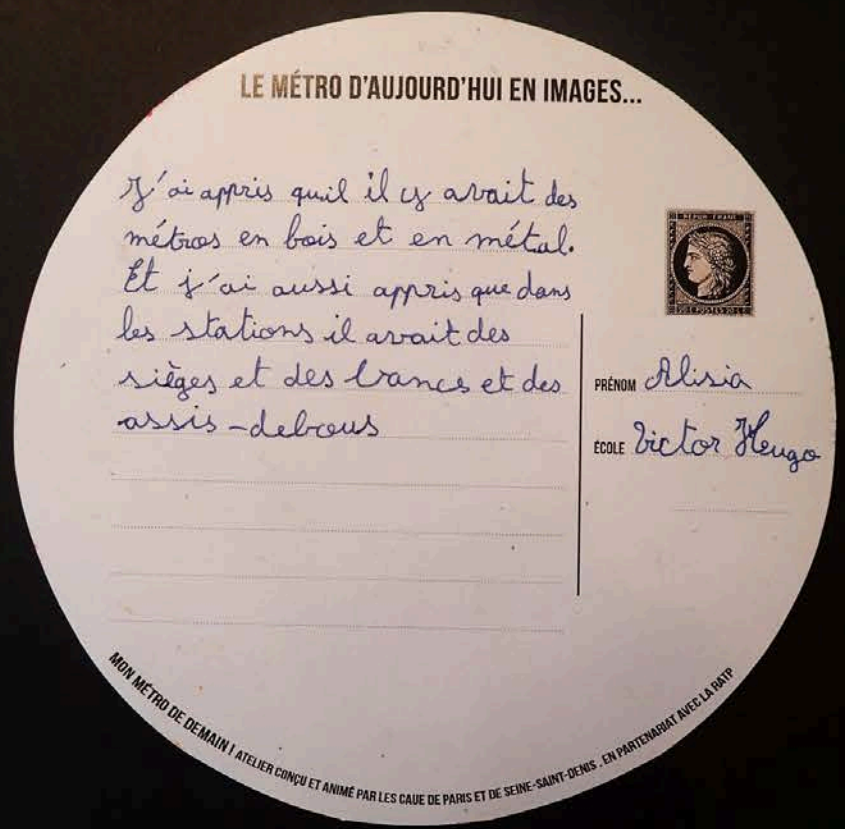 LE MÉTRO D'AUJOURD'HUI EN IMAGES...
J'ai appris quil il y avait des
métros en bois et en métal.
Et j'ai aussi appris que dans
les stations il avait des
sièges et des bancs et des
assis-debous
RÉPUB. FRANC.
PRÉNOM Alisia
ÉCOLE Victor Heugo
MON MÉTRO DE DEMAIN ! ATELIER CONÇU ET ANIMÉ PAR LES CAUE DE PARIS ET DE SEINE-SAINT-DENIS . EN PARTENARIAT AVEC LA RATP